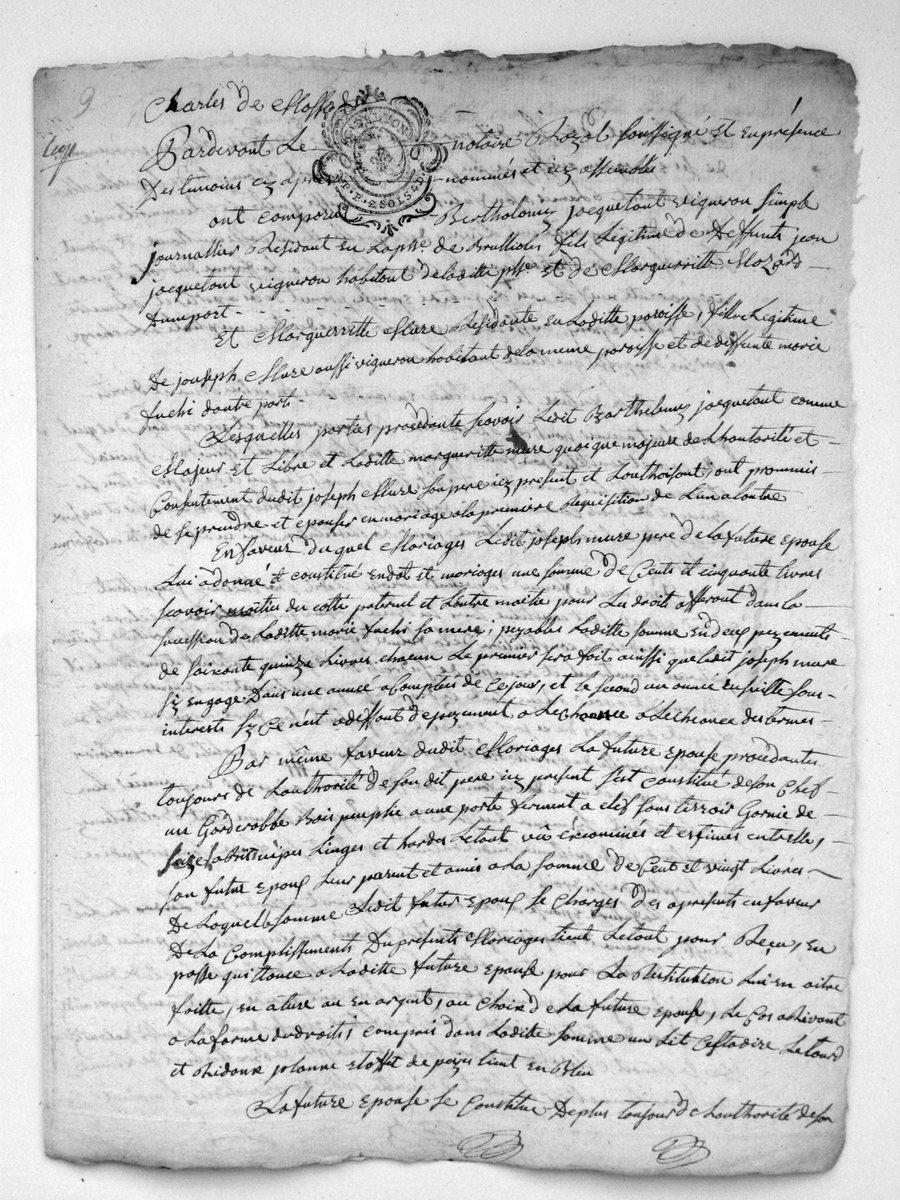 9
Charles de Masso
Pardevant Le notaire Royal soussigné et en présence
Des temoins cy après nommés et icy assemblés
ont comparu Bertholomy jacquetant vigneron simple
journallier Residant en Lad. psse. de Brullioles fils Legitime de Deffunt jean
jacquetant vigneron habitant de laditte psse et de Marguerritte Mozard
d'une part
Et Marguerritte Mure Residante en Laditte paroisse, fille Legitime
De jouseph Mure aussi vigneron habitant de la meme paroisse et de deffunte marie
fuchi dautre part.
Lesquelles parties procèdante scavoir Ledit Barthelemy jacquetant comme
Majeur et Libre et Laditte margueritte mure quoique majeure de Lhautorité et
Consentement dudit joseph Mure son pere icy présent et Lauthorisant, ont prommis
de se prendre et epouser en mariage a la première Requisition de Lun a Lautre
En faveur du quel Mariages Ledit joseph mure pere de la future Epouse
Lui a donné et constitué en dot et mariages une somme De Cents et cinquante Livres
scavoir moitié du cotté paternel et Lautre moitié pour Les droits afferant dans la
succession de Laditte marie fuchi sa mere; payables Laditte somme En deux payements
de soixante quinze Livres chacun Le premier sera fait ainssi que Ledit joseph mure
sy engage Dans une année a Compter de Ce jour, et le second un année ensuitte sans
interests sy Ce nest a deffaut de payement a L'echeance des termes
Par même faveur dudit Mariages La future Epouse procèdantes
toujours de Lauthorité de son dit pere icy present sest constitué de son Chef
un Garderobbe Bois peuplié a une porte ferment a clef sans tirroir Garnie de
seize Linges et hardes Le tout vû éxaminés et estimés entrelle,
son futur epoux Leur parent et amis a La somme de Cent et vingt Livres
De Laquelle somme Ledit futur Epoux se Charges Des apresents en faveur
De La Complissements Du présents Mariages tient Le tout pour Reçu, en
passe quittance a Laditte future epouse pour La Restitution Lui en aitre
faitte, en nature ou en argent, au Choix de La future epouse, Le Cas arivant
a La forme du droits, compris dans Laditte somme un Lit Cestadire Le tourd
et Ridaux etoffe de payis tient en Bleu
La future epouse se Constitue De plus toujour de Lauthorité de son